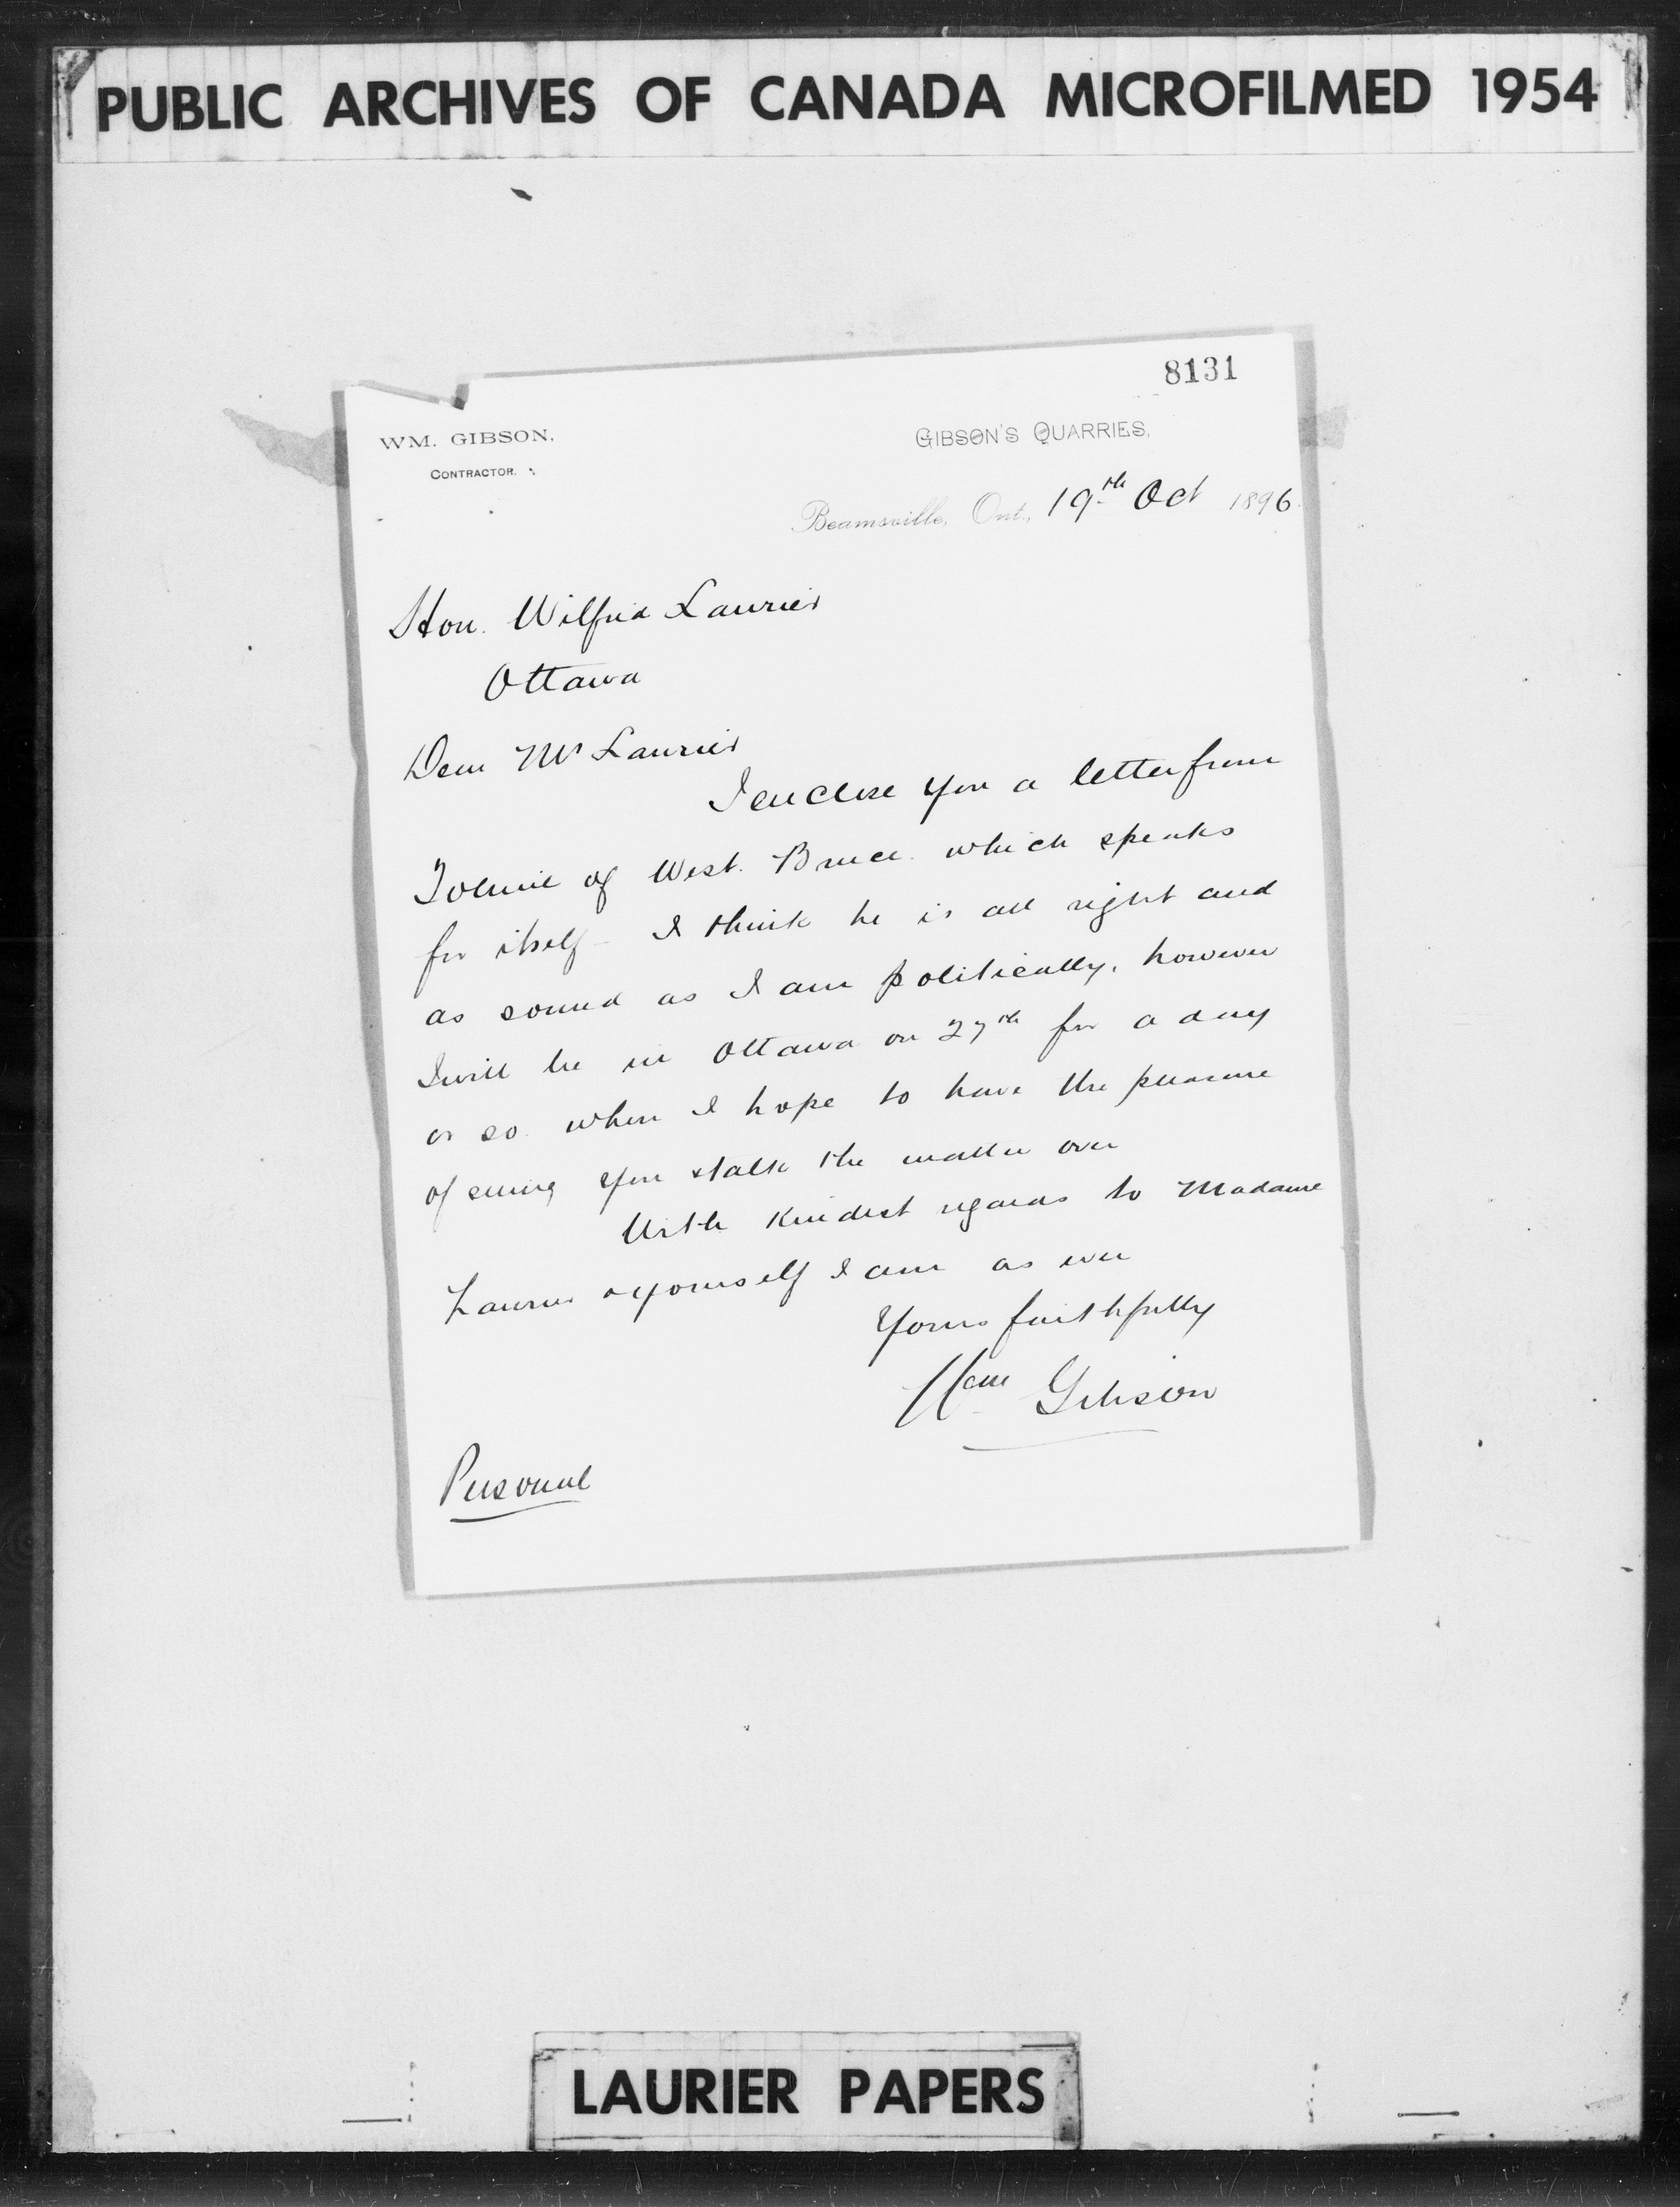 PUBLIC ARCHIVES OF CANADA MICROFILMED 1954
8131
WM. GIBSON,
CONTRACTOR.
GIBSON'S QUARRIES,
Beamsville, Ont., 19th Oct 1896
Hon. Wilfrid Laurier
Ottawa
Dear Mr Laurier
I enclose you a letter from
Tolmie of West. Bruce. which speaks
for itself - I think he is all right and
as sound as I am politically, however
I will be in Ottawa on 27th for a day
or so. when I hope to have the pleasure
of seeing you & talk the matter over
With Kindest regards to Madame
Laurier & yourself I am as ever
Yours faithfully
Wm Gibson
Personal
LAURIER PAPERS